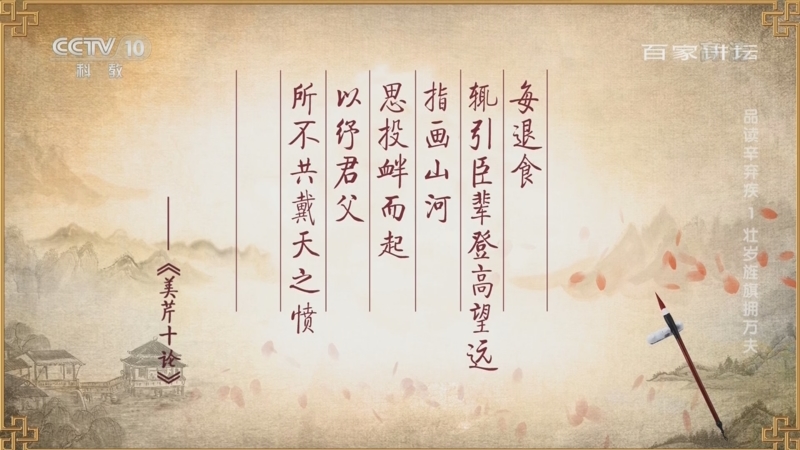 CCTV 10
科 教
百家讲坛
品读辛弃疾 1 壮岁旌旗拥万夫
每退食
辄引臣辈登高望远
指画山河
思投衅而起
以纾君父
所不共戴天之愤
——《美芹十论》